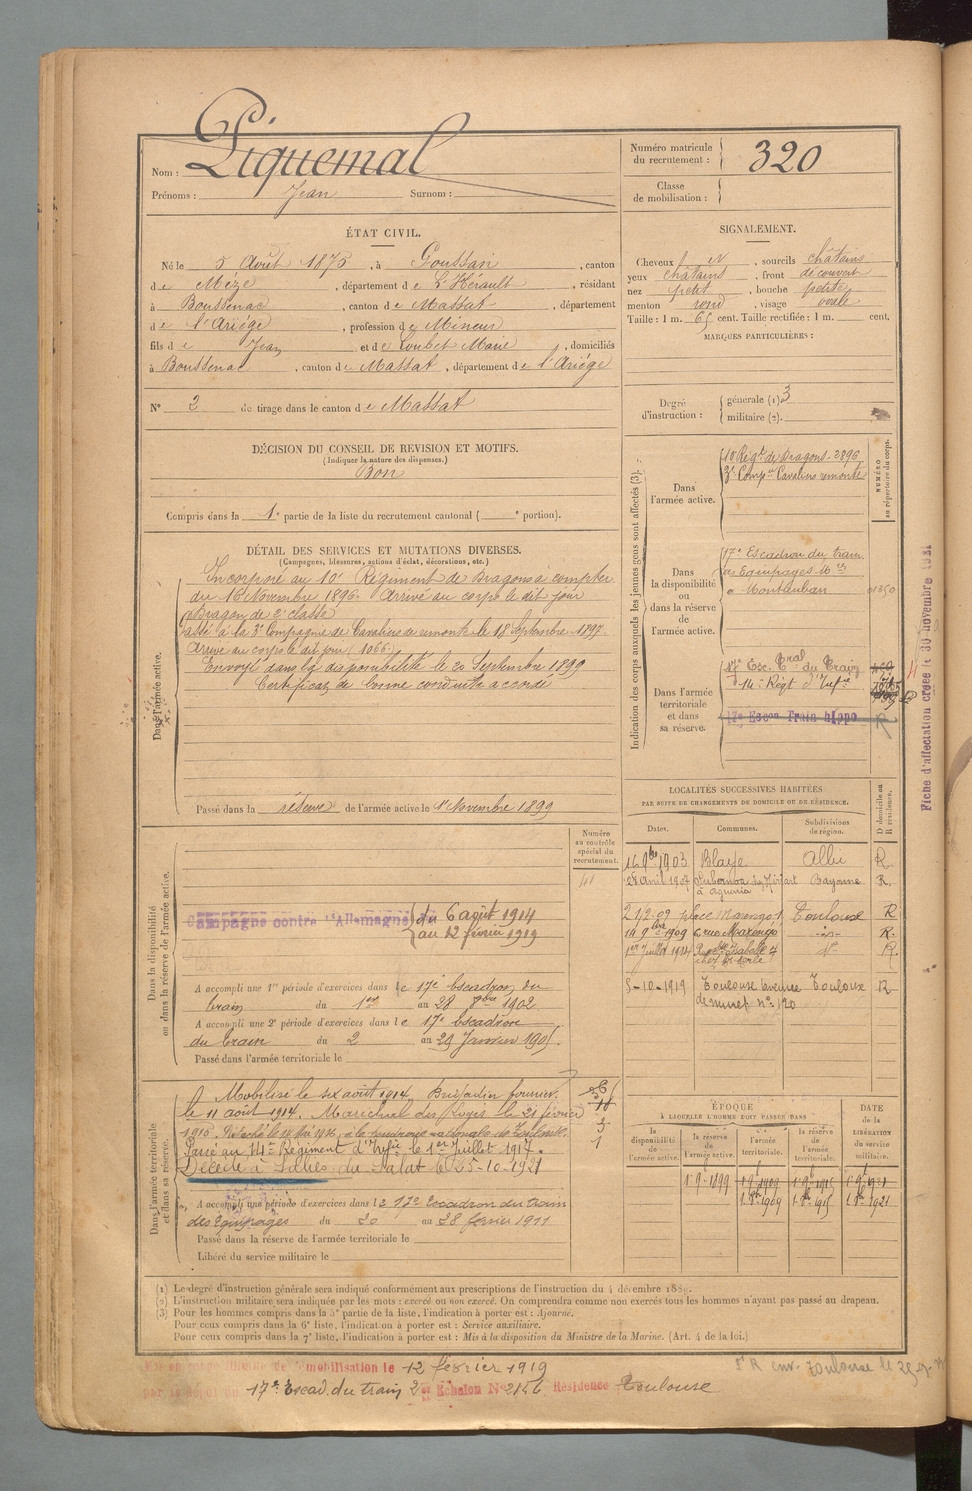 Nom : Piquemal
Prénoms : Jean Surnom :
Numéro matricule du recrutement : 320
Classe de mobilisation :
ÉTAT CIVIL.
Né le 5 Août 1875, à Goussan, canton
de Mèze, département de L'Hérault, résidant
à Boussenac, canton de Massat, département
de l'Ariége, profession de Mineur
fils de Jean et de Loubet Marie, domiciliés
à Boussenac, canton de Massat, département de l'Ariége
N° 2 de tirage dans le canton de Massat
SIGNALEMENT.
Cheveux et, sourcils châtains
yeux châtains, front découvert
nez petit, bouche petite
menton rond, visage ovale
Taille : 1 m. 65 cent. Taille rectifiée : 1 m. cent.
MARQUES PARTICULIÈRES :
Degré d'instruction : générale (1) 3
militaire (2).
DÉCISION DU CONSEIL DE REVISION ET MOTIFS.
(Indiquer la nature des dispenses.)
Bon
Compris dans la 1e partie de la liste du recrutement cantonal ( e portion).
DÉTAIL DES SERVICES ET MUTATIONS DIVERSES.
(Campagnes, blessures, actions d'éclat, décorations, etc.)
Dans l'armée active.
Incorporé au 10e Régiment de Dragons à compter
du 16 Novembre 1896. Arrivé au corps le dit jour
Dragon de 2e classe
Passé à la 3e Compagnie de Cavaliers de remonte le 18 Septembre 1897.
Arrivé au corps le dit jour (1066)
Envoyé dans la disponibilité le 20 Septembre 1899
Certificat de bonne conduite accordé
Passé dans la réserve de l'armée active le 1er Novembre 1899
Indication des corps auxquels les jeunes gens sont affectés (3).
NUMÉRO au répertoire du corps.
Dans l'armée active.
10 Régt de Dragons - 2896
3e Compie Cavaliers remonte
Dans la disponibilité ou dans la réserve de l'armée active.
17e Escadron du train
des Equipages Mres
à Montauban 01350
Dans l'armée territoriale et dans sa réserve.
17e Esc. Tral du Train
14e Régt d'Infie
17e Escon Train hippo R
Fiche d'affectation créée le 30 novembre 1931
LOCALITÉS SUCCESSIVES HABITÉES
PAR SUITE DE CHANGEMENTS DE DOMICILE OU DE RÉSIDENCE.
Dates. Communes. Subdivisions de région. D domicile ou R résidence.
16 9bre 1903 Blaye Albi R.
28 Avril 1907 Bayonne R.
21/2-09 place Marengo 1 Toulouse R
14 9bre 1909 6 rue Marengo -id- R.
1er Juillet 1914 R
5-10-1919 Toulouse avenue Toulouse R
de Muret n° 120
Numéro au contrôle spécial du recrutement.
Dans la disponibilité ou dans la réserve de l'armée active.
Campagne contre l'Allemagne du 6 août 1914
au 12 février 1919
A accompli une 1re période d'exercices dans le 17e escadron du
train du 1er au 28 9bre 1902
A accompli une 2e période d'exercices dans le 17e Escadron
du train du 2 au 29 Janvier 1905.
Passé dans l'armée territoriale le
Dans l'armée territoriale et dans sa réserve.
Mobilisé le six août 1914. Brigadier fourrier
le 11 août 1914. Maréchal des logis le 21 février
1915. Détaché le 14 Mai 1916, à la poudrerie nationale de Toulouse.
Passé au 14e Régiment d'Infie le 1er Juillet 1917.
Décédé à Salies du Salat le 25-10-1921
A accompli une période d'exercices dans le 17e Escadron du train
des Equipages du 20 au 28 février 1911
Passé dans la réserve de l'armée territoriale le
Libéré du service militaire le
ÉPOQUE
À LAQUELLE L'HOMME DOIT PASSER DANS
DATE de la LIBÉRATION du service militaire.
la disponibilité de l'armée active. la réserve de l'armée active. l'armée territoriale. la réserve de l'armée territoriale.
1-9-1899 1-9-1909 1-9-1915 1-9-1921
1-8bre 1909 1-8bre 1915 1-8bre 1921
(1) Le degré d'instruction générale sera indiqué conformément aux prescriptions de l'instruction du 4 décembre 1889.
(2) L'instruction militaire sera indiquée par les mots : exercé ou non exercé. On comprendra comme non exercés tous les hommes n'ayant pas passé au drapeau.
(3) Pour les hommes compris dans la 5e partie de la liste, l'indication à porter est : Ajourné.
Pour ceux compris dans la 6e liste, l'indication à porter est : Service auxiliaire.
Pour ceux compris dans la 7e liste, l'indication à porter est : Mis à la disposition du Ministre de la Marine. (Art. 4 de la loi.)
Mis en congé illimité de démobilisation le 12 février 1919
par le dépôt du 17e Escad. du train 2e Echelon N° 2156 Résidence Toulouse